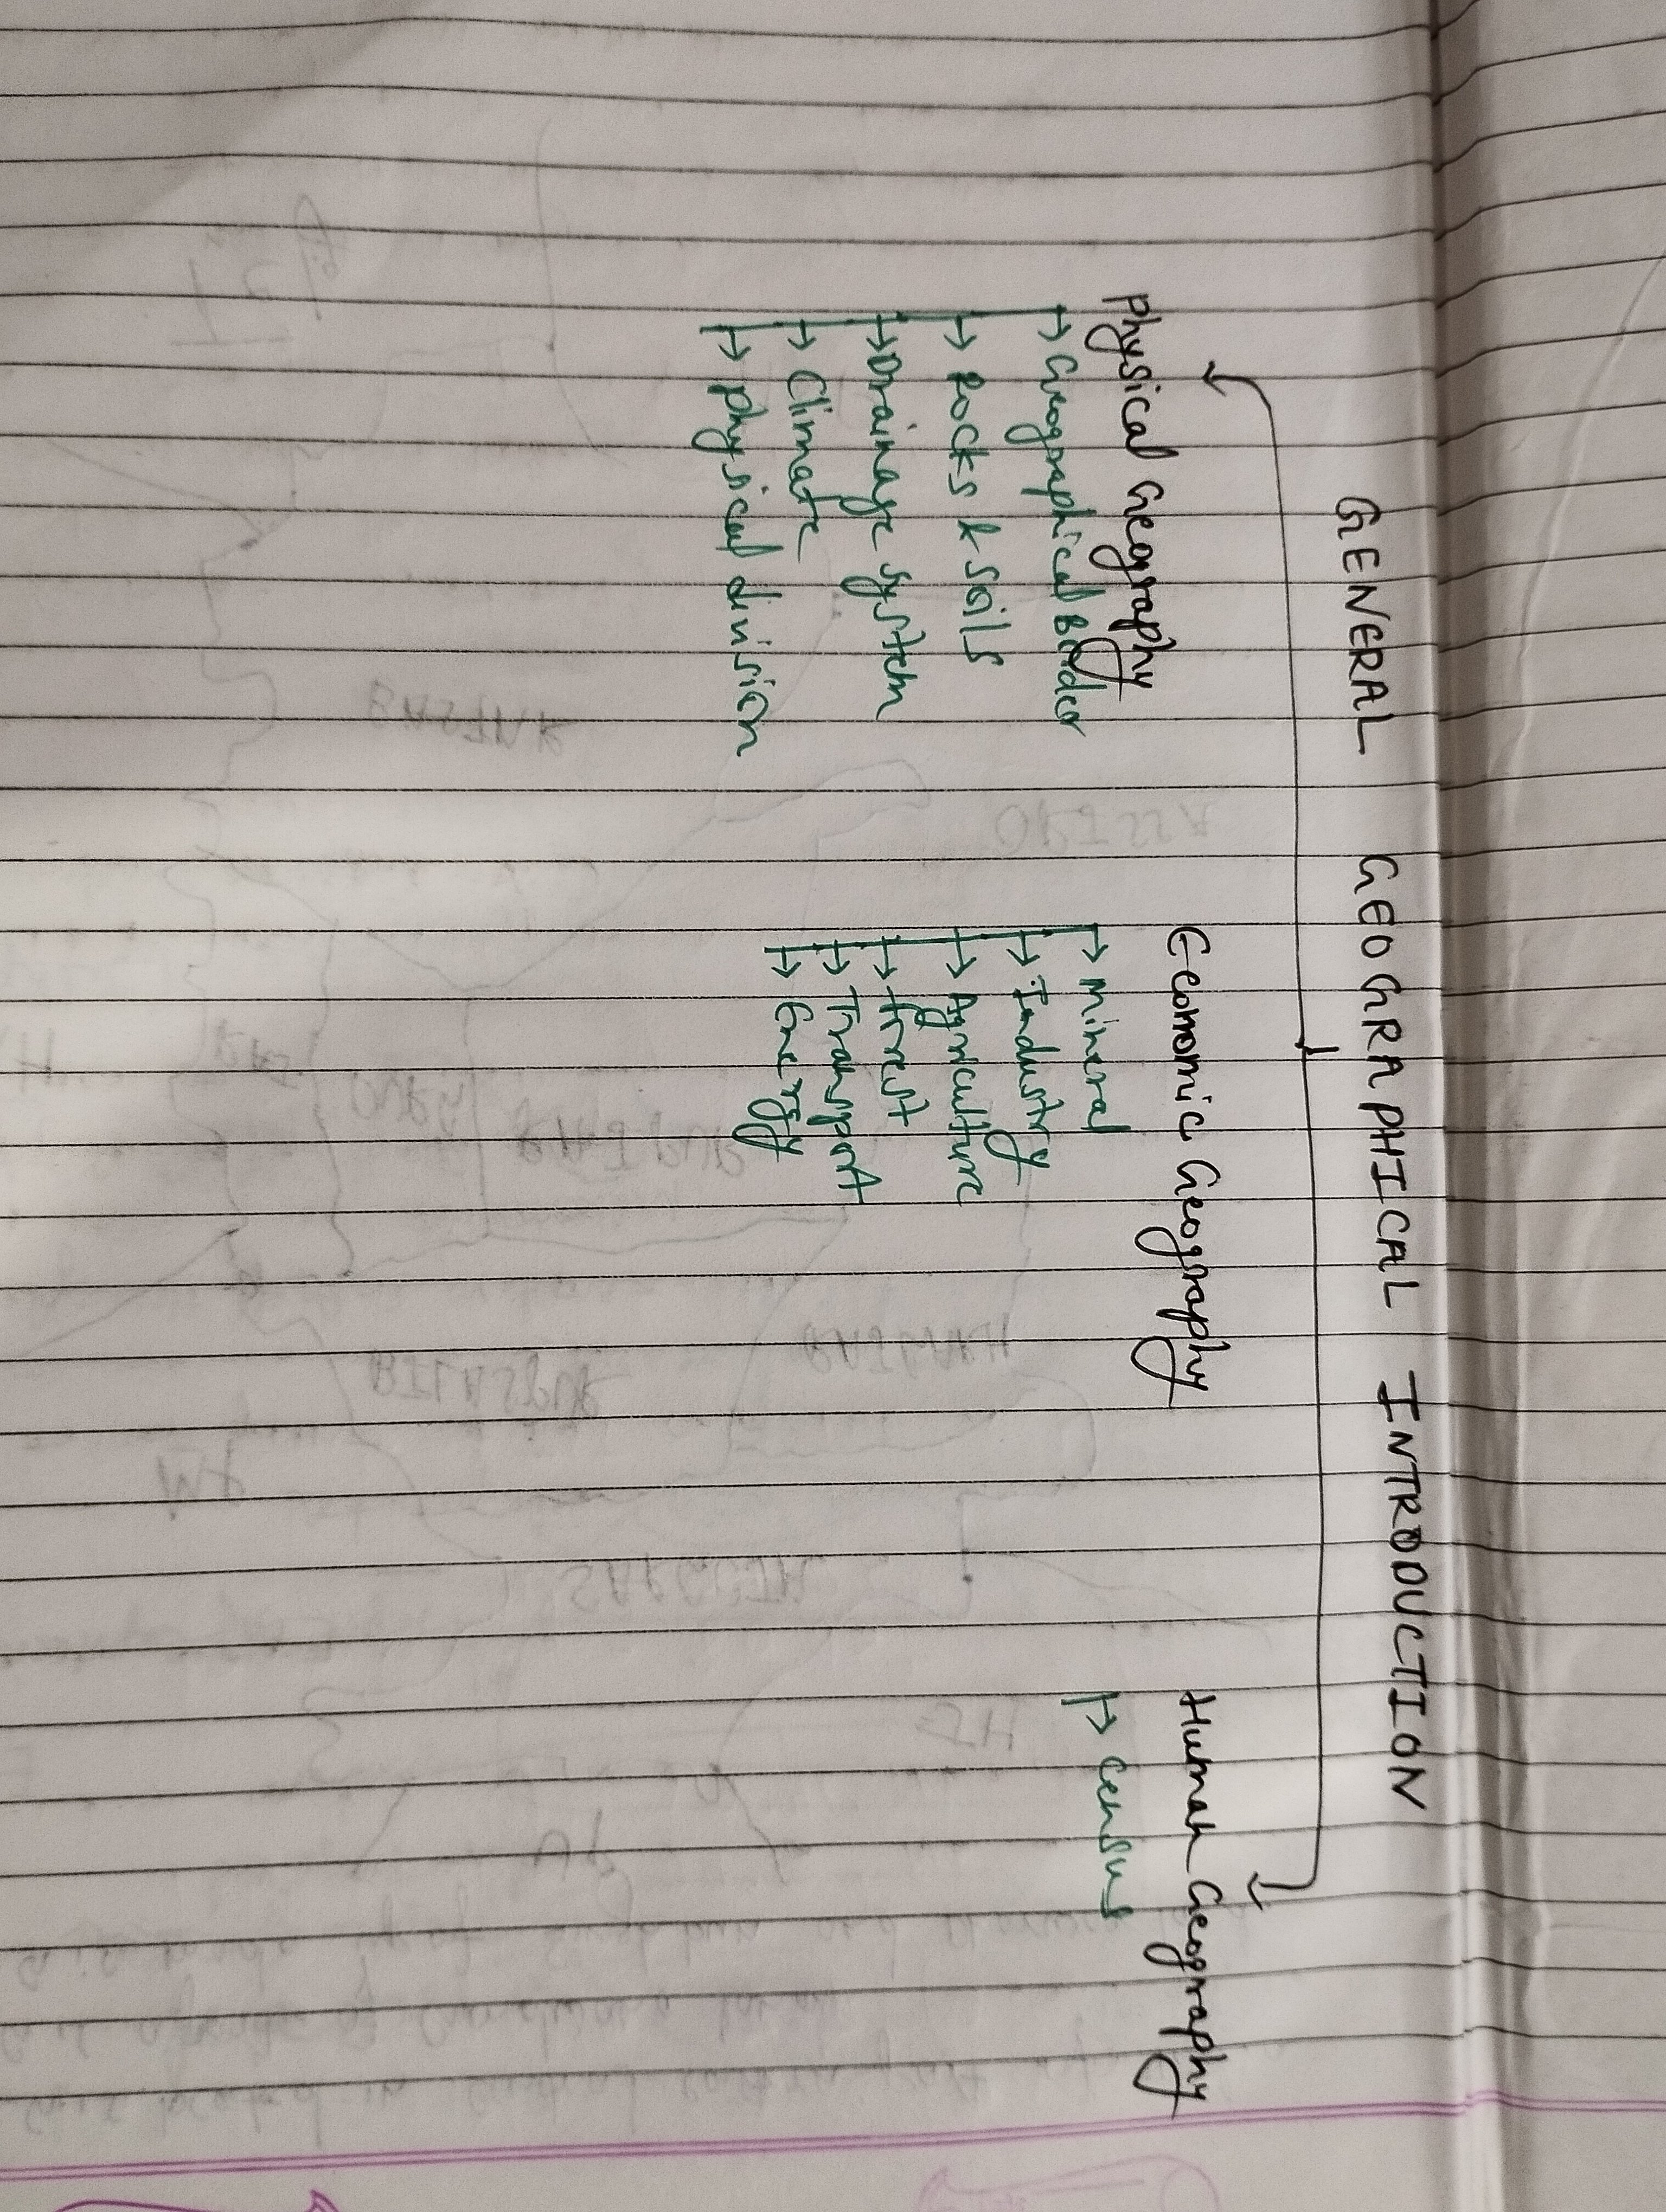 GENERAL GEOGRAPHICAL INTRODUCTION
Physical Geography
Geographical Border
Rocks & Soils
Drainage system
Climate
Physical division
Economic Geography
Mineral
Industry
Agriculture
forest
Transport
Energy
Human Geography
Census